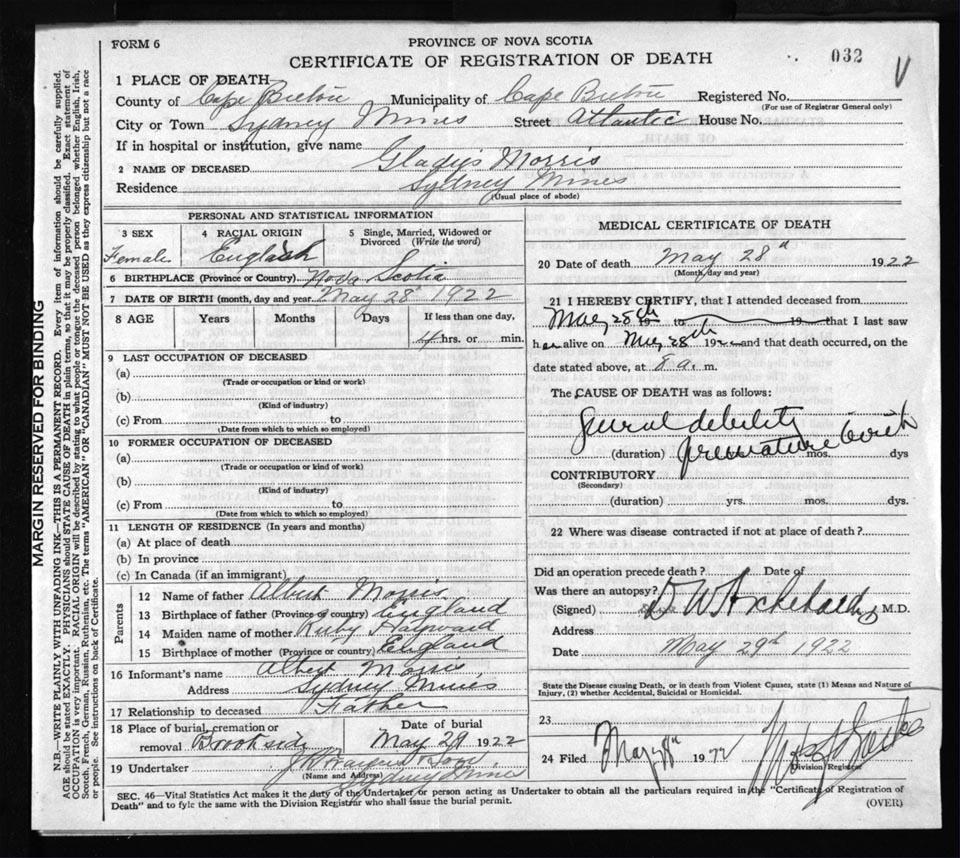 FORM 6
PROVINCE OF NOVA SCOTIA
CERTIFICATE OF REGISTRATION OF DEATH
032
V
1 PLACE OF DEATH
County of Cape Breton Municipality of Cape Breton Registered No.
(For use of Registrar General only)
City or Town Sydney Mines Street Atlantic House No.
If in hospital or institution, give name
2 NAME OF DECEASED Gladys Morris
Residence Sydney Mines
(Usual place of abode)
PERSONAL AND STATISTICAL INFORMATION
3 SEX 4 RACIAL ORIGIN 5 Single, Married, Widowed or Divorced (Write the word)
Female English
6 BIRTHPLACE (Province or Country) Nova Scotia
7 DATE OF BIRTH (month, day and year) May 28th 1922
8 AGE Years Months Days If less than one day,
4 hrs. or min.
9 LAST OCCUPATION OF DECEASED
(a)
(Trade or occupation or kind or work)
(b)
(Kind of industry)
(c) From to
(Date from which to which so employed)
10 FORMER OCCUPATION OF DECEASED
(a)
(Trade or occupation or kind or work)
(b)
(Kind of industry)
(c) From to
(Date from which to which so employed)
11 LENGTH OF RESIDENCE (In years and months)
(a) At place of death
(b) In province
(c) In Canada (if an immigrant)
Parents
12 Name of father Albert Morris
13 Birthplace of father (Province or country) England
14 Maiden name of mother Ruby Hayward
15 Birthplace of mother (Province or country) England
16 Informant's name Albert Morris
Address Sydney Mines
17 Relationship to deceased Father
18 Place of burial, cremation or removal Brookside Date of burial May 29 1922
19 Undertaker
(Name and Address) Sydney Mines
MEDICAL CERTIFICATE OF DEATH
20 Date of death May 28th 1922
(Month, day and year)
21 I HEREBY CERTIFY, that I attended deceased from
May 28th 19 to 19 that I last saw
her alive on May 28th 192 and that death occurred, on the
date stated above, at 8 a. m.
The CAUSE OF DEATH was as follows:
General debility
premature birth
(duration) mos. dys
CONTRIBUTORY
(Secondary)
(duration) yrs. mos. dys.
22 Where was disease contracted if not at place of death?
Did an operation precede death? Date of
Was there an autopsy?
(Signed) D W Archibald M.D.
Address
Date May 29th 1922
State the Disease causing Death, or in death from Violent Causes, state (1) Means and Nature of
Injury, (2) whether Accidental, Suicidal or Homicidal.
23
24 Filed 19
Division Registrar
SEC. 46—Vital Statistics Act makes it the duty of the Undertaker or person acting as Undertaker to obtain all the particulars required in the "Certificate of Registration of
Death" and to fyle the same with the Division Registrar who shall issue the burial permit.
(OVER)
MARGIN RESERVED FOR BINDING
N.B.—WRITE PLAINLY WITH UNFADING INK—THIS IS A PERMANENT RECORD. Every item of information should be carefully supplied.
AGE should be stated EXACTLY. PHYSICIANS should STATE CAUSE OF DEATH in plain terms, so that it may be properly classified. Exact statement of
OCCUPATION is very important. RACIAL ORIGIN will be described by stating to what people or tongue the deceased person belonged whether English, Irish,
Scotch, French, German, Russian, Ruthenian, etc. The terms "AMERICAN" OR "CANADIAN" MUST NOT BE USED as they express citizenship but not a race
or people. See instructions on back of Certificate.